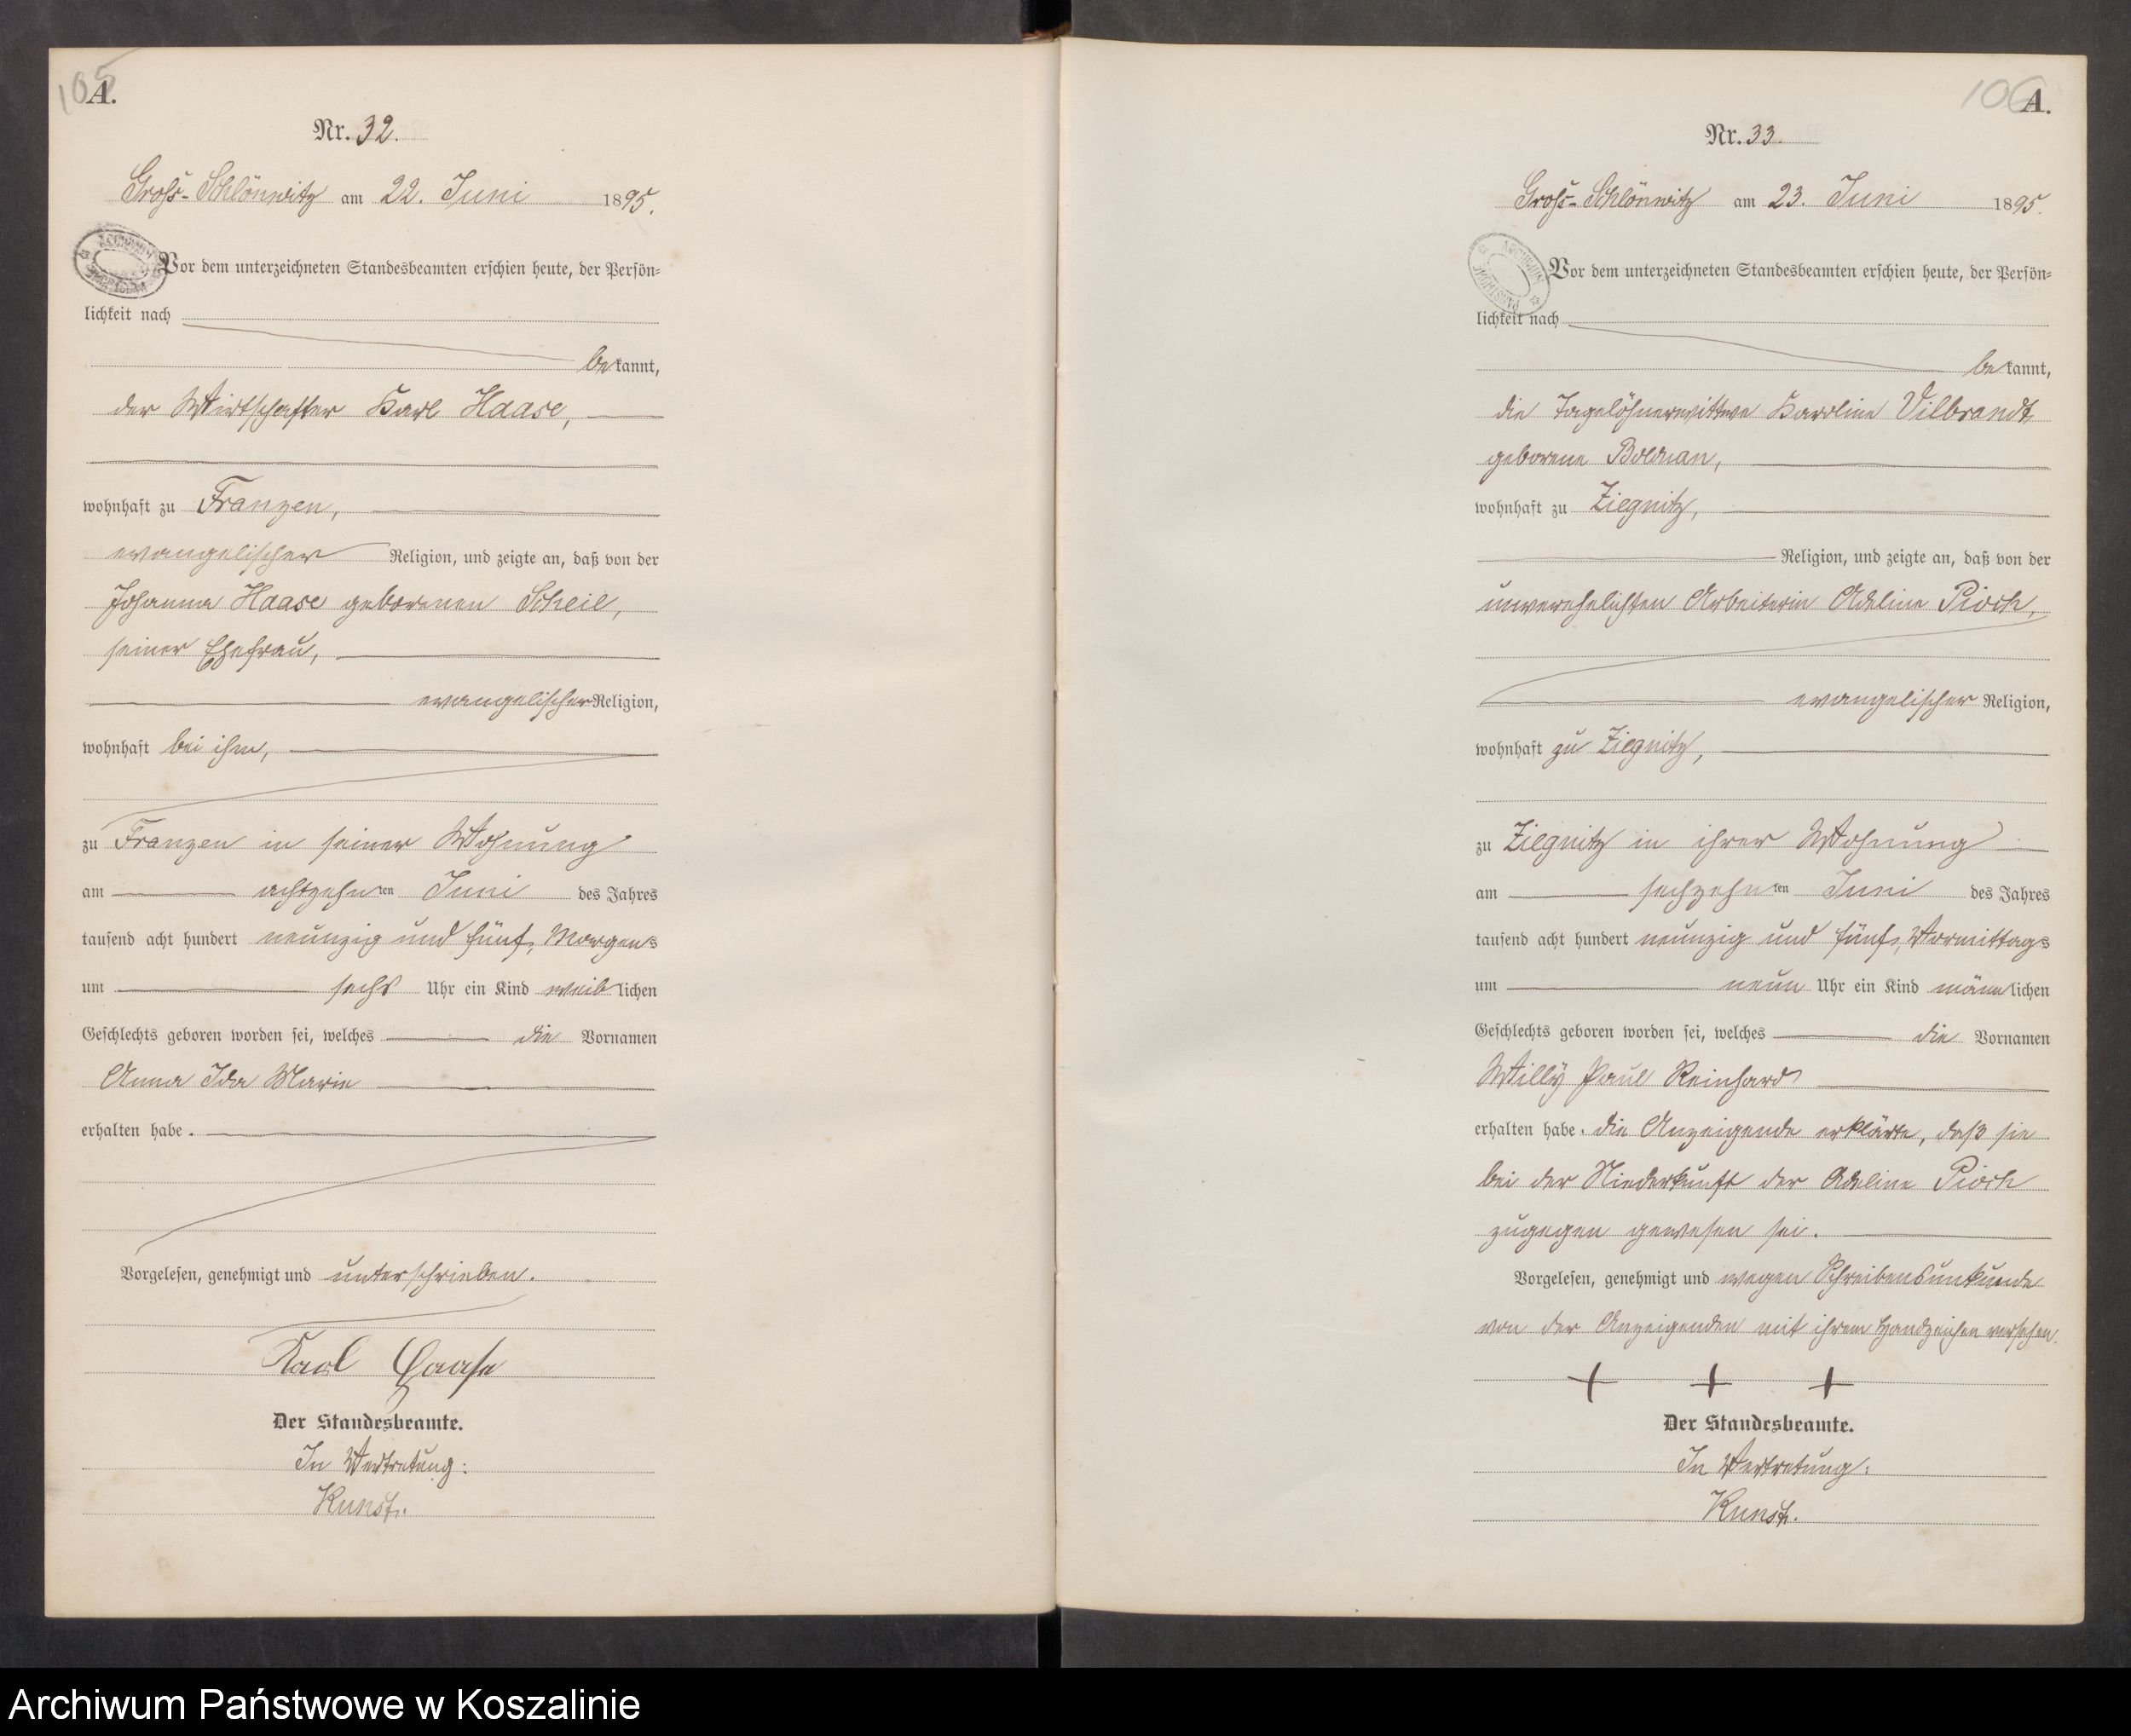 105
A.
Nr. 32.
Groß-Schlönwitz am 22. Juni 1895.
Vor dem unterzeichneten Standesbeamten erschien heute, der Persön-
lichkeit nach
bekannt,
der Wirtschafter Karl Haase,
wohnhaft zu Franzen,
evangelischer Religion, und zeigte an, daß von der
Johanna Haase geborenen Scheil,
seiner Ehefrau,
evangelischer Religion,
wohnhaft bei ihm,
zu Franzen in seiner Wohnung
am achtzehnten Juni des Jahres
tausend acht hundert neunzig und fünf, Morgens
um sechs Uhr ein Kind weiblichen
Geschlechts geboren worden sei, welches die Vornamen
Anna Ida Marie
erhalten habe.
Vorgelesen, genehmigt und unterschrieben.
Karl Haase
Der Standesbeamte.
In Vertretung:
Kunst.
106
A.
Nr. 33.
Groß-Schlönwitz am 23. Juni 1895.
Vor dem unterzeichneten Standesbeamten erschien heute, der Persön-
lichkeit nach
bekannt,
die Tagelöhnerwittwe Karoline Vilbrandt
geborene Bolduan,
wohnhaft zu Ziegnitz,
Religion, und zeigte an, daß von der
unverehelichten Arbeiterin Adeline Pioch,
evangelischer Religion,
wohnhaft zu Ziegnitz,
zu Ziegnitz in ihrer Wohnung
am sechzehnten Juni des Jahres
tausend acht hundert neunzig und fünf, Vormittags
um neun Uhr ein Kind männlichen
Geschlechts geboren worden sei, welches die Vornamen
Willy Paul Reinhard
erhalten habe. die Anzeigende erklärte, daß sie
bei der Niederkunft der Adeline Pioch
zugegen gewesen sei.
Vorgelesen, genehmigt und wegen Schreibensunkunde
von der Anzeigenden mit ihrem Handzeichen versehen.
+ + +
Der Standesbeamte.
In Vertretung:
Kunst.
Archiwum Państwowe w Koszalinie